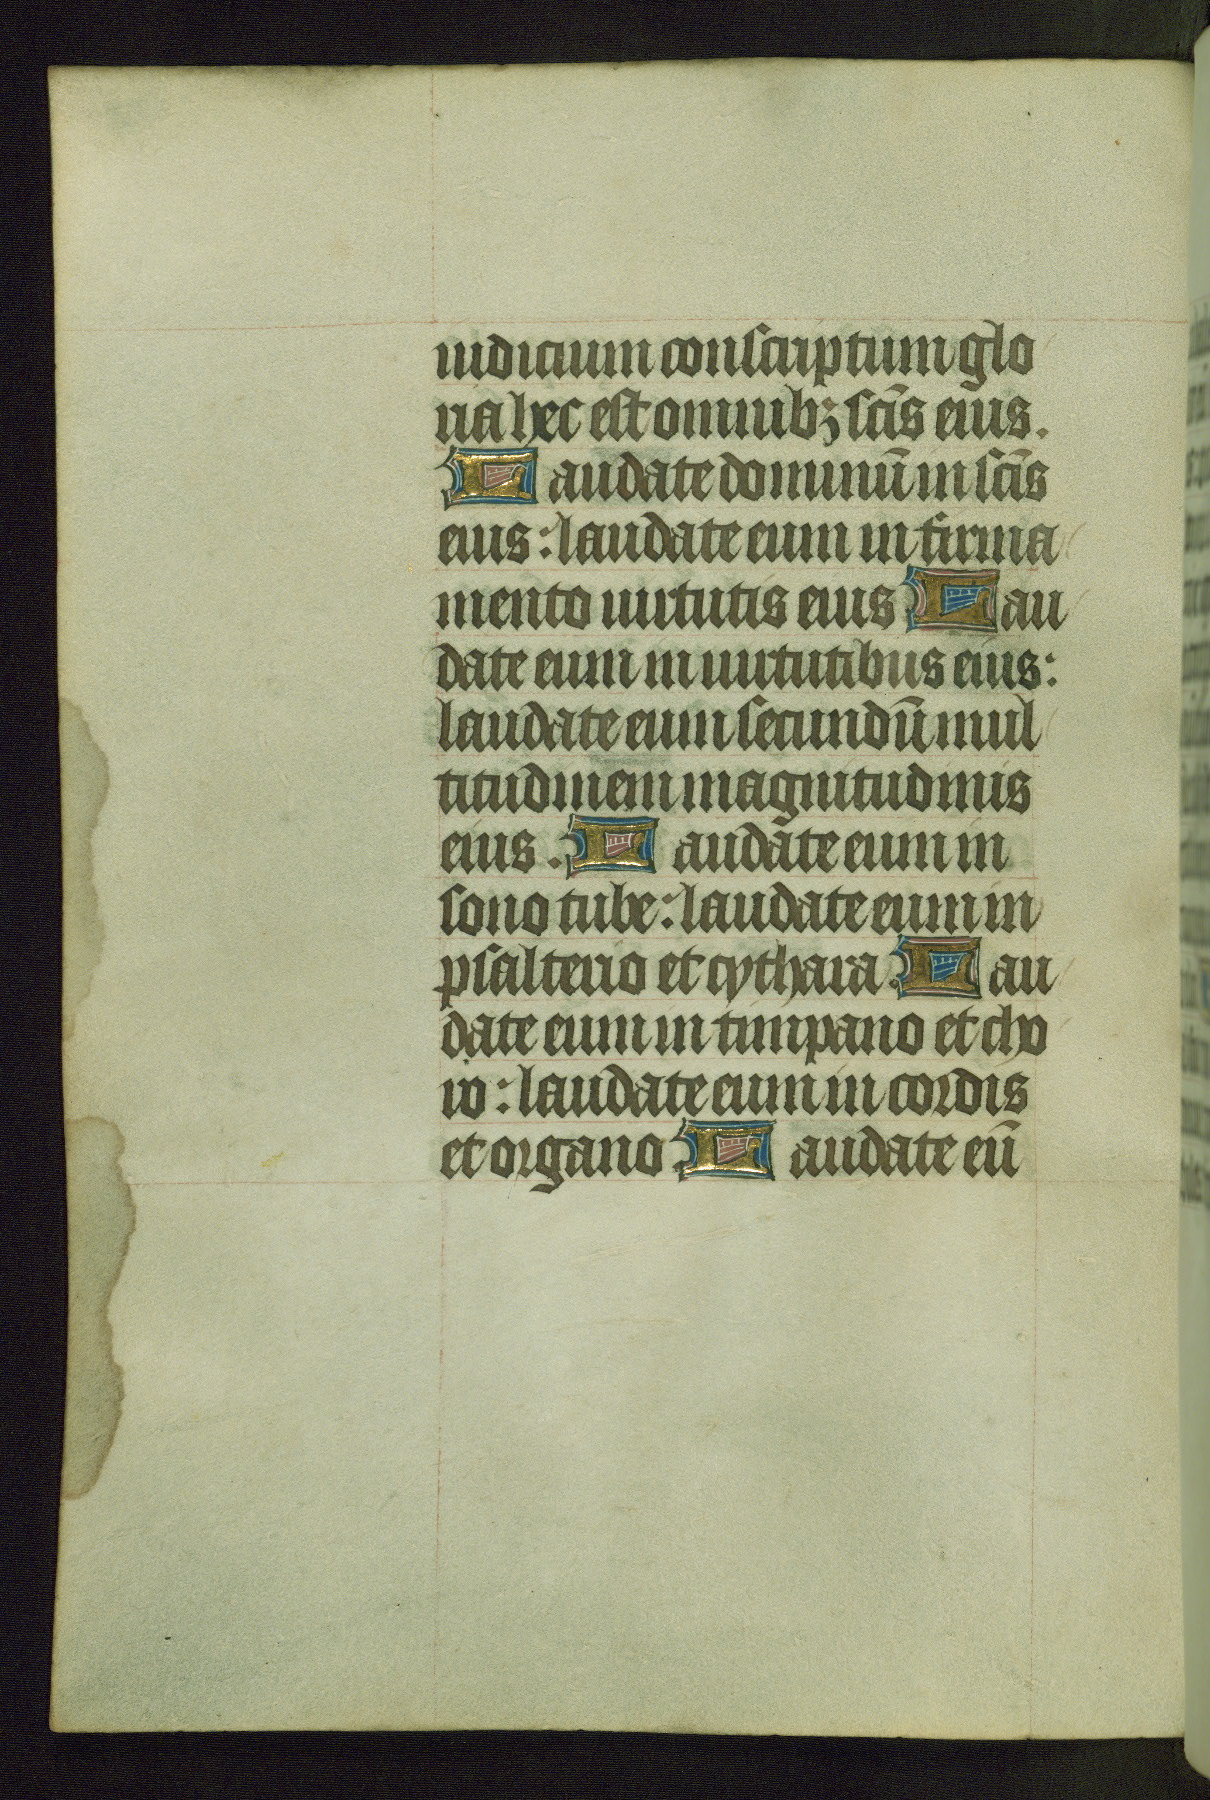 iudicium conscriptum glo
ria hec est omnibꝫ sc̄is eius.
Laudate dominū in sc̄is
eius: laudate eum in firma
mento uirtutis eius. Lau
date eum in uirtutibus eius:
laudate eum secundū mul
titudinem magnitudinis
eius. Laudate eum in
sono tube: laudate eum in
psalterio et cythara. Lau
date eum in timpano et cho
ro: laudate eum in cordis
et organo. Laudate eū